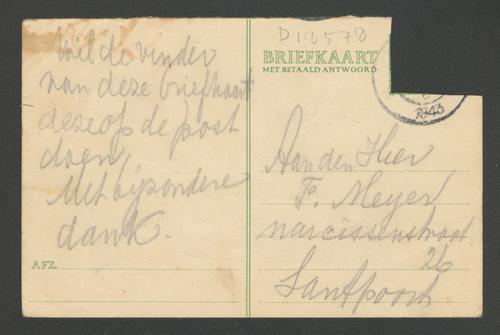 D12578
Wil de vinder
van deze briefkaart
deze op de post
doen,
Met bijzondere
dank.
AFZ.
BRIEFKAART
MET BETAALD ANTWOORD
1943
Aan den Heer
F. Meyer
narcissenstraat
26
Santpoort